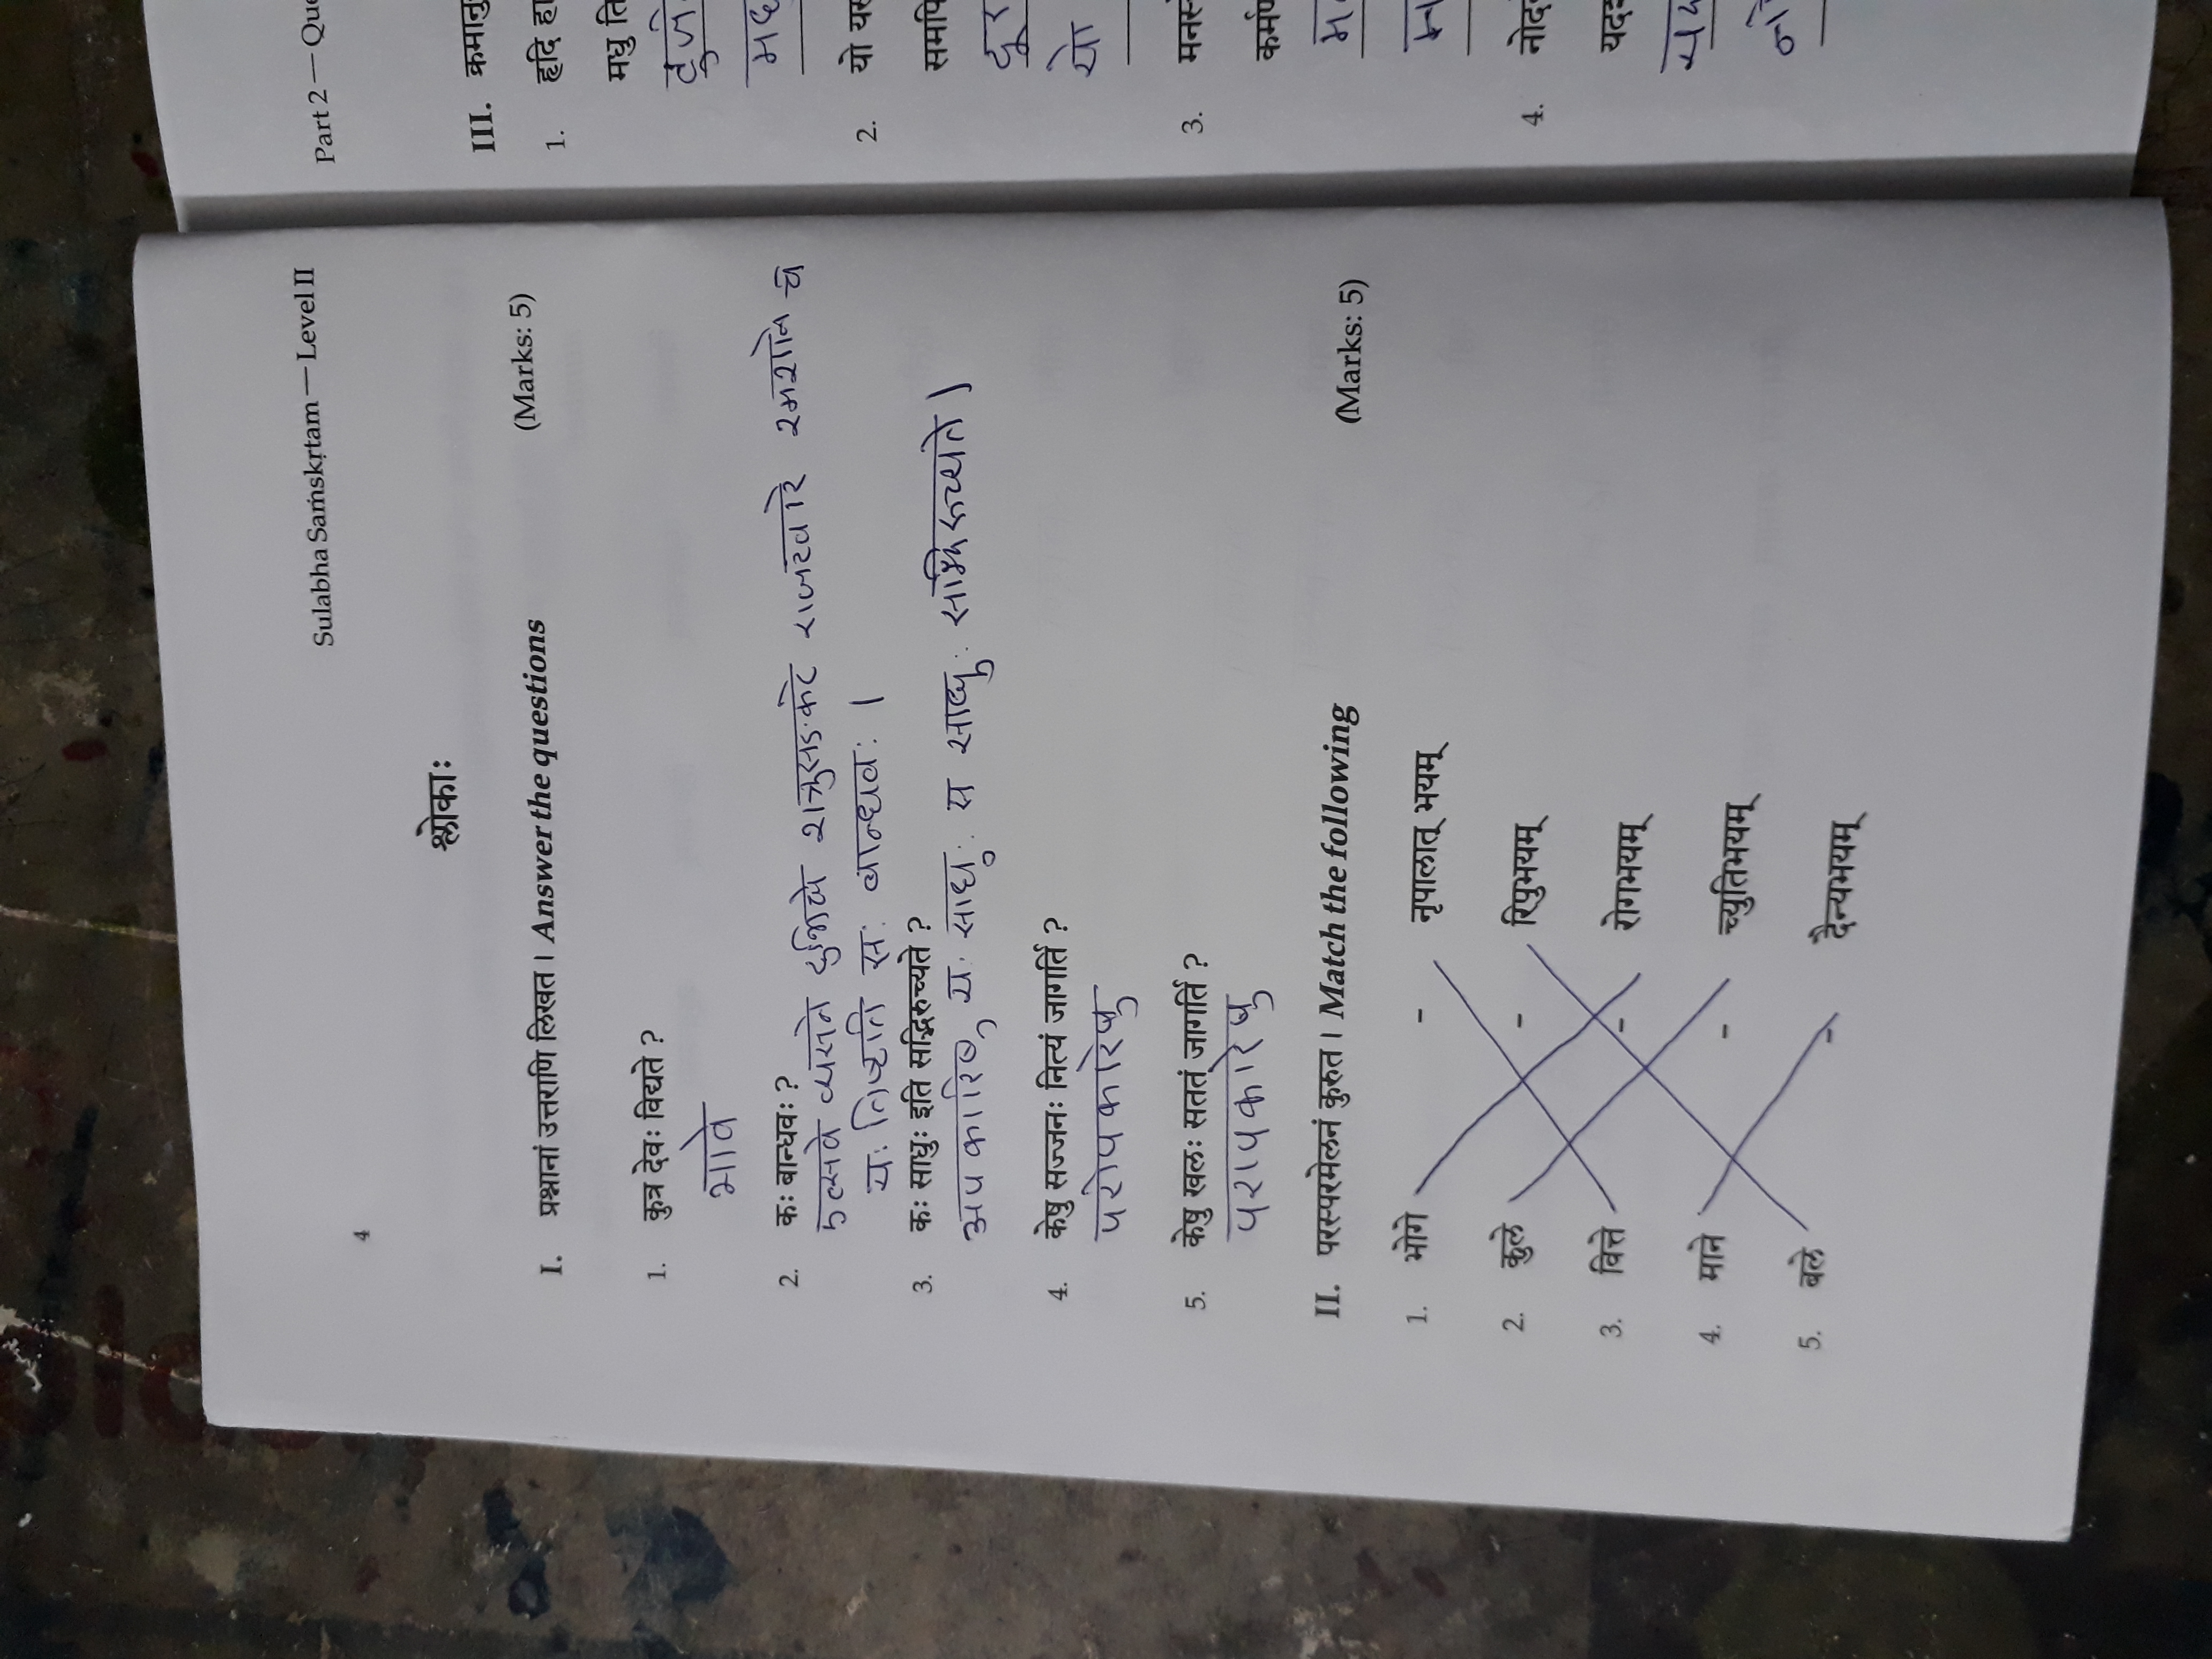 Sulabha Saṁskṛtam — Level II
4
श्लोकाः
I. प्रश्नानां उत्तराणि लिखत । Answer the questions (Marks: 5)
1. कुत्र देवः विद्यते ?
भावे
2. कः बान्धवः ?
उत्सवे व्यसने दुर्भिक्षे शत्रुसङ्कटे राजद्वारे श्मशाने च
यः तिष्ठति सः बान्धवः ।
3. कः साधुः इति सद्भिरुच्यते ?
अपकारिषु यः साधुः स साधुः सद्भिरुच्यते ।
4. केषु सज्जनः नित्यं जागर्ति ?
परोपकारेषु
5. केषु खलः सततं जागर्ति ?
परापकारेषु
II. परस्परमेलनं कुरुत । Match the following (Marks: 5)
1. भोगे - नृपालात् भयम्
2. कुले - रिपुभयम्
3. वित्ते - रोगभयम्
4. माने - च्युतिभयम्
5. बले - दैन्यभयम्
Part 2 —
III.
1. हृदि
मधु
2. यो
3.
4.